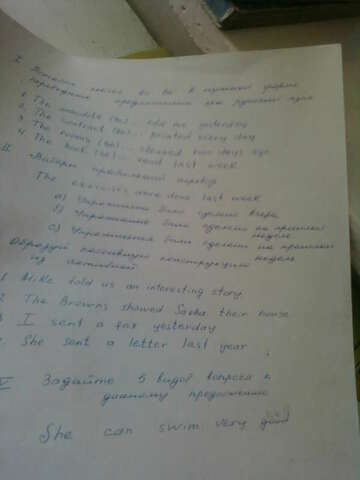 I. Вставьте глагол to be в нужной форме
переведите предложения на русский язык
1. The (to be) me yesterday
2. The (be) printed every day
3. The rooms (be)... cleaned two days ago
4. The book (be)... read last week
II. Выбери правильный перевод
The exercises were done last week
а) Упражнения были сделаны вчера
б) Упражнения были сделаны на прошлой
неделе
с) Упражнения были сделаны на прошлой
неделе
Образуй пассивную конструкцию
из активной
1 Mike told us an interesting story.
2 The Browns showed Sasha their house
3 I sent a fax yesterday
She sent a letter last year.
V Задайте 5 видов вопроса к
данному предложению
She can swim very good